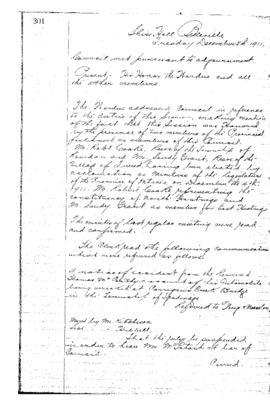 301
Shire Hall Belleville
Tuesday December 5th 1911.
Council met pursuant to adjournment
Present: His Honor the Warden and all
the other members.
The Warden addressed Council in reference
to the duties of this Session, making mention
of the fact that this Session was honored
by the presence of two members of the Provincial
Parliament as members of this Council
Mr. Robt Cooke, Reeve of the Township of
Rawdon and Mr. Sandy Grant, Reeve of the
Village of having been elected by
acclamation as Members of the Legislature
of the Province of Ontario on December the 4th
1911. Mr. Robert Cooke representing the
constituency of North Hastings and
Mr. Sandy Grant as member for East Hastings
The minutes of last regular meeting were read
and confirmed.
The Clerk read the following communications
which were referred as follows:
A notice of accident from the Reverend
Thomas McCarthy, on account of his Automobile
being wrecked at Creek Bridge
in the Township of
Referred to
Moved by Mr.
Sec.
That the rules be suspended
in order to hear Mr. at bar of
Council.
Carried.